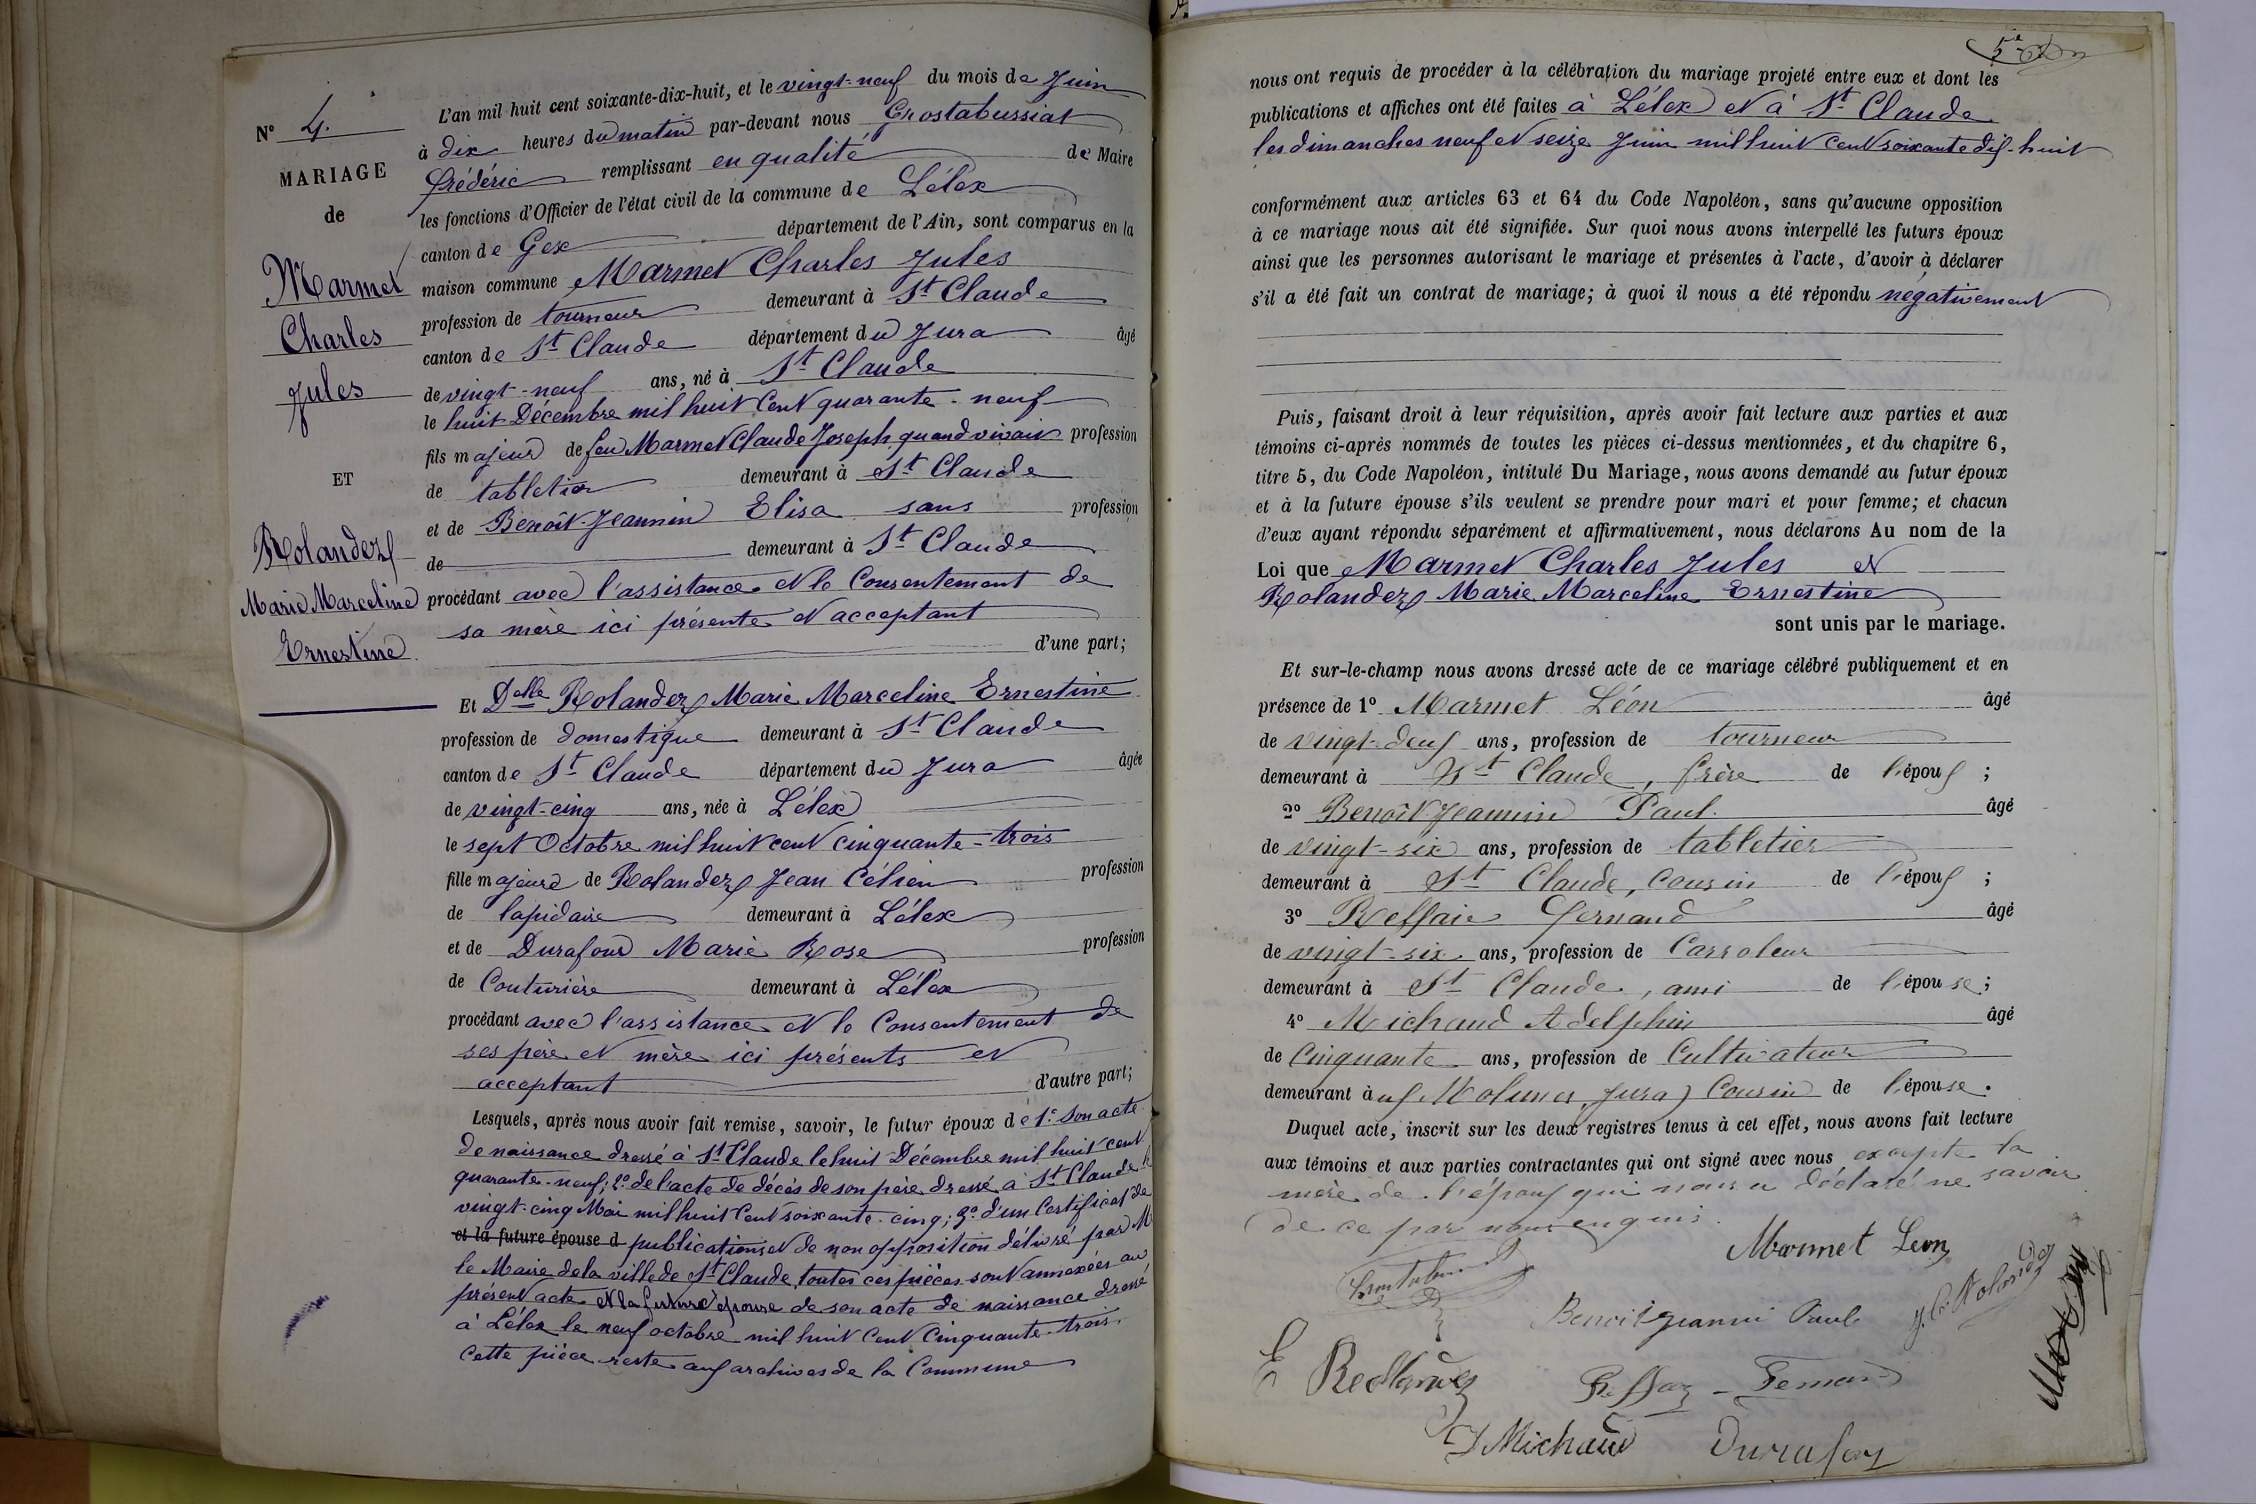 N° 4.
MARIAGE
de
Marmet
Charles
Jules
ET
Rolandez
Marie Marceline
Ernestine
L'an mil huit cent soixante-dix-huit, et le vingt-neuf du mois de Juin
à dix heures du matin par-devant nous Grostabussiat
frédéric remplissant en qualité de Maire
les fonctions d'Officier de l'état civil de la commune de Lélex
canton de Gex département de l'Ain, sont comparus en la
maison commune Marmet Charles Jules
profession de tourneur demeurant à St Claude
canton de St Claude département du Jura âgé
de vingt-neuf ans, né à St Claude
le huit Décembre mil huit Cent quarante-neuf
fils majeur de feu Marmet Claude Joseph quand vivait profession
de tabletier demeurant à St Claude
et de Benoît-Jeannin Elisa sans profession
de demeurant à St Claude
procédant avec l'assistance et le Consentement de
sa mère ici présente et acceptant
d'une part;
Et Delle Rolandez Marie Marceline Ernestine
profession de domestique demeurant à St Claude
canton de St Claude département du Jura âgée
de vingt-cinq ans, née à Lélex
le sept Octobre mil huit cent cinquante-trois
fille majeure de Rolandez Jean Célien profession
de lapidaire demeurant à Lélex
et de Durafour Marie Rose profession
de Couturière demeurant à Lélex
procédant avec l'assistance et le Consentement de
ses père et mère ici présents et
acceptant d'autre part;
Lesquels, après nous avoir fait remise, savoir, le futur époux de 1° son acte
de naissance dressé à St Claude le huit Décembre mil huit cent
quarante-neuf; 2° de l'acte de décès de son père dressé à St Claude le
vingt-cinq Mai mil huit Cent soixante-cinq; 3° d'un Certificat de
et la future épouse d publications et de non opposition délivré par M
le Maire de la ville de St Claude, toutes ces pièces sont annexées au
présent acte et la future épouse de son acte de naissance dressé
à Lélex le neuf octobre mil huit Cent Cinquante-trois.
Cette pièce reste aux archives de la Commune
5e
nous ont requis de procéder à la célébration du mariage projeté entre eux et dont les
publications et affiches ont été faites à Lélex et à St Claude
les dimanches neuf et seize Juin mil huit cent soixante dix-huit
conformément aux articles 63 et 64 du Code Napoléon, sans qu'aucune opposition
à ce mariage nous ait été signifiée. Sur quoi nous avons interpellé les futurs époux
ainsi que les personnes autorisant le mariage et présentes à l'acte, d'avoir à déclarer
s'il a été fait un contrat de mariage; à quoi il nous a été répondu négativement
Puis, faisant droit à leur réquisition, après avoir fait lecture aux parties et aux
témoins ci-après nommés de toutes les pièces ci-dessus mentionnées, et du chapitre 6,
titre 5, du Code Napoléon, intitulé Du Mariage, nous avons demandé au futur époux
et à la future épouse s'ils veulent se prendre pour mari et pour femme; et chacun
d'eux ayant répondu séparément et affirmativement, nous déclarons Au nom de la
Loi que Marmet Charles Jules et
Rolandez Marie Marceline Ernestine
sont unis par le mariage.
Et sur-le-champ nous avons dressé acte de ce mariage célébré publiquement et en
présence de 1° Marmet Léon âgé
de vingt-deux ans, profession de tourneur
demeurant à St Claude, frère de l'époux ;
2° Benoît-Jeannin Paul âgé
de vingt-six ans, profession de tabletier
demeurant à St Claude, Cousin de l'époux ;
3° Reffay Fernand âgé
de vingt-six ans, profession de
demeurant à St Claude, ami de l'épouse ;
4° Michaud Adelphin âgé
de Cinquante ans, profession de Cultivateur
demeurant aux Molunes, Jura) Cousin de l'épouse.
Duquel acte, inscrit sur les deux registres tenus à cet effet, nous avons fait lecture
aux témoins et aux parties contractantes qui ont signé avec nous excepté la
mère de l'époux qui nous a déclaré ne savoir
de ce par nous enquis.
Marmet Léon
Benoitjeannin Paul
J. C. Rolandez
E Rollandez
Reffay Fernand
Michaud
Durafour